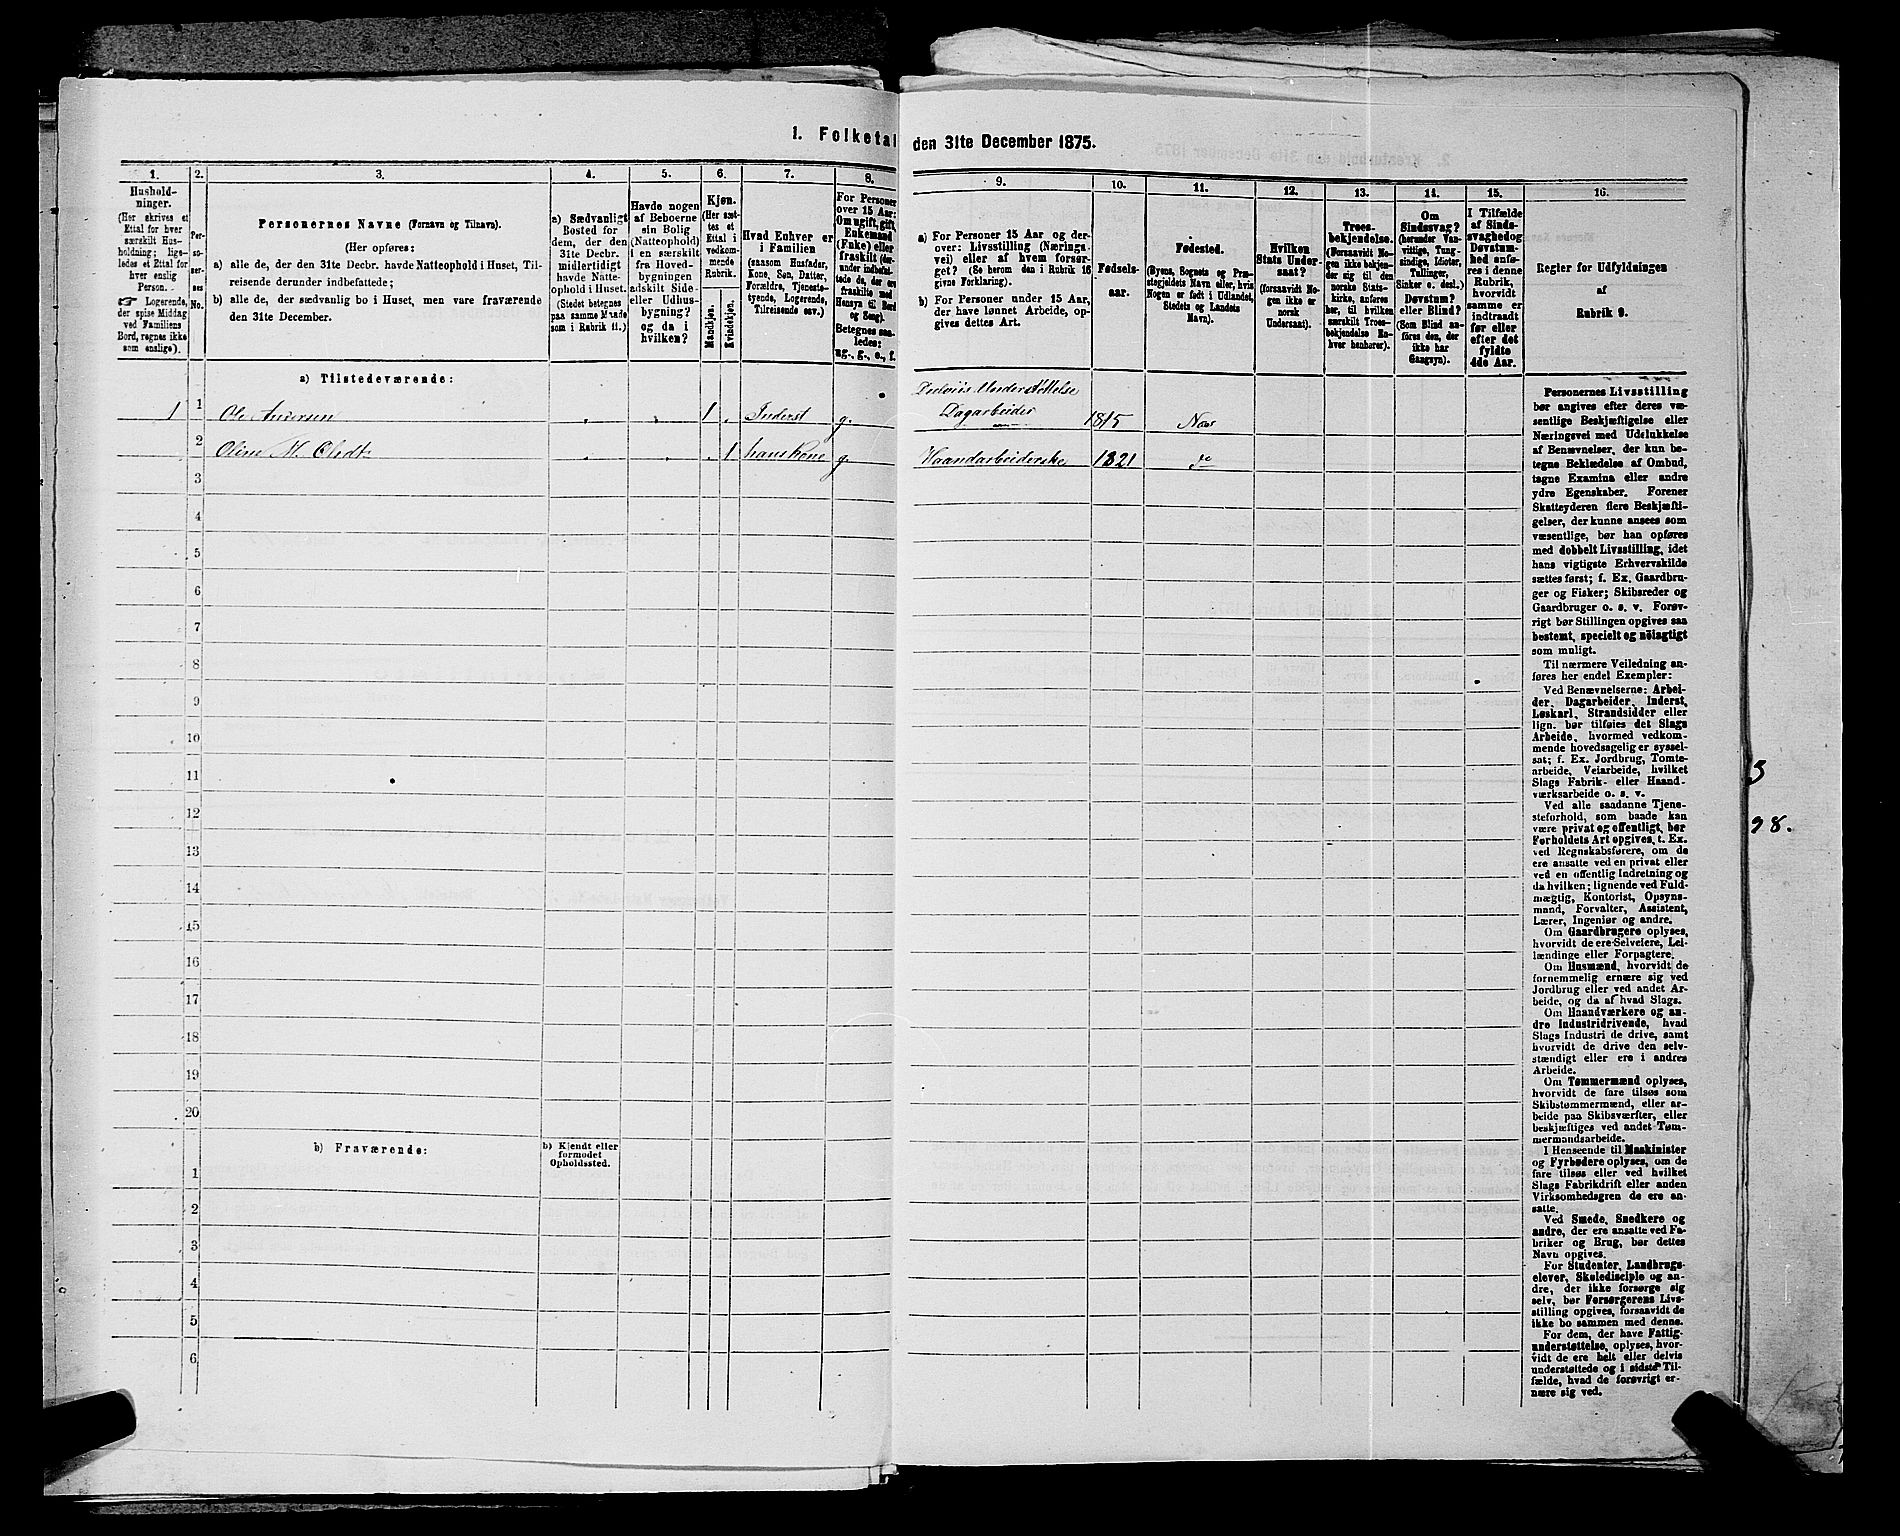 1. Folketal den 31te December 1875.
1.
2.
3.
4.
5.
6.
7.
8.
9.
10.
11.
12.
13.
14.
15.
16.
Hushold-
ninger.
(Her skrives et
Ettal for hver
særskilt Hus-
holdning; lige-
ledes et Ettal for
hver enslig
Person.
☞ Logerende,
der spise Middag
ved Familiens
Bord, regnes ikke
som enslige).
Per-
so-
ner-
nes
No.
Personernes Navne (Fornavn og Tilnavn).
(Her opføres:
a) alle de, der den 31te Decbr. havde Natteophold i Huset, Til-
reisende derunder indbefattede;
b) alle de, der sædvanlig bo i Huset, men vare fraværende
den 31te December.
a) Sædvanligt
Bosted for
dem, der den
31te Decbr.
midlertidigt
havde Natte-
ophold i Huset.
(Stedet betegnes
paa samme Maade
som i Rubrik 11.)
Havde nogen
af Beboerne
sin Bolig
(Natteophold)
i en særskilt
fra Hoved-
bygningen
adskilt Side-
eller Udhus-
bygning?
og da i
hvilken?
Kjøn.
(Her sæt-
tes et
Ettal i
vedkom-
mende
Rubrik.
Mandkjøn.
Kvindekjøn.
Hvad Enhver er
i Familien
(saasom Husfader,
Kone, Søn, Datter,
Forældre, Tjeneste-
tyende, Logerende,
Tilreisende osv.)
For Personer
over 15 Aar:
Om ugift, gift,
Enkemand
(Enke) eller
fraskilt (der-
under indbefat-
tede de, der ere
fraskilte med
Hensyn til Bord
og Seng).
Betegnes saa-
ledes:
ug., g., e., f.
a) For Personer 15 Aar og der-
over: Livsstilling (Nærings-
vei) eller af hvem forsør-
get? (Se herom den i Rubrik 16
givne Forklaring).
b) For Personer under 15 Aar,
der have lønnet Arbeide, op-
gives dettes Art.
Fødsels-
aar.
Fødested.
(Byens, Sognets og Præ-
stegjeldets Navn eller, hvis
Nogen er født i Udlandet,
Stedets og Landets
Navn).
Hvilken
Stats Under-
saat?
(forsaavidt No-
gen ikke er
norsk
Undersaat).
Troes-
bekjendelse.
(Forsaavidt No-
gen ikke bekjen-
der sig til den
norske Stats-
kirke, anføres
her, til hvilken
særskilt Troes-
bekjendelse En-
hver henhører).
Om
Sindssvag?
(herunder Van-
vittige, Tung-
sindige, Idioter,
Tullinger,
Sinker o. desl.)
Døvstum?
eller Blind?
(Som Blind an-
føres den, der
ikke har
Gangsyn).
I Tilfælde
af Sinds-
svaghed og
Døvstum-
hed anfø-
res i denne
Rubrik,
hvorvidt
samme er
indtraadt
før eller
efter det
fyldte
4de Aar.
Regler for Udfyldningen
af
Rubrik 9.
a) Tilstedeværende:
1 1 Ole Andersen „ „ 1 „ Inderst g.
Dagarbeider 1815
2 „ „ „ 1 hans Kone g. Haandarbeiderske 1821 do
3
4
5
6
7
8
9
10
11
12
13
14
15
16
17
18
19
20
b) Fraværende:
b) Kjendt eller
formodet
Opholdssted.
1
2
3
4
5
6
Personernes Livsstilling
bør angives efter deres væ-
sentlige Beskjæftigelse eller
Næringsvei med Udelukkelse
af Benævnelser, der kun be-
tegne Beklædelse af Ombud,
tagne Examina eller andre
ydre Egenskaber. Forener
Skatteyderen flere Beskjæfti-
gelser, der kunne ansees som
væsentlige, bør han opføres
med dobbelt Livsstilling, idet
hans vigtigste Erhvervskilde
sættes først; f. Ex. Gaardbru-
ger og Fisker; Skibsreder og
Gaardbruger o. s. v. Forøv-
rigt bør Stillingen opgives saa
bestemt, specielt og nöiagtigt
som muligt.
Til nærmere Veiledning an-
føres her endel Exempler:
Ved Benævnelserne: Arbei-
der, Dagarbeider, Inderst,
Løskarl, Strandsidder eller
lign. bør tilføies det Slags
Arbeide, hvormed vedkom-
mende hovedsagelig er syssel-
sat; f. Ex. Jordbrug, Tomte-
arbeide, Veiarbeide, hvilket
Slags Fabrik- eller Haand-
værksarbeide o. s. v.
Ved alle saadanne Tjene-
steforhold, som baade kan
være privat og offentligt, bør
Forholdets Art opgives, t. Ex.
ved Regnskabsførere, om de
ere ansatte ved en privat eller
ved en offentlig Indretning og
da hvilken; lignende ved Fuld-
mægtig, Kontorist, Opsyns-
mand, Forvalter, Assistent,
Lærer, Ingeniør og andre.
Om Gaardbrugere oplyses,
hvorvidt de ere Selveiere, Lei-
lændinge eller Forpagtere.
Om Husmænd, hvorvidt de
fornemmelig ernære sig ved
Jordbrug eller ved andet Ar-
beide, og da af hvad Slags.
Om Haandværkere og an-
dre Industridrivende, hvad
Slags Industri de drive, samt
hvorvidt de drive den selv-
stændigt eller ere i andres
Arbeide.
Om Tømmermænd oplyses,
hvorvidt de fare tilsøs som
Skibstømmermænd, eller ar-
beide paa Skibsværfter, eller
beskjæftiges ved andet Tøm-
mermandsarbeide.
I Henseende til Maskinister
og Fyrbødere oplyses, om de
fare tilsøs eller ved hvilket
Slags Fabrikdrift eller anden
Virksomhedsgren de ere an-
satte.
Ved Smede, Snedkere og
andre, der ere ansatte ved Fa-
briker og Brug, bør dettes
Navn opgives.
For Studenter, Landbrugs-
elever, Skoledisciple og an-
dre, der ikke forsørge sig
selv, bør Forsørgerens Livs-
stilling opgives, forsaavidt de
ikke bo sammen med denne.
For dem, der have Fattig-
understøttelse, oplyses, hvor-
vidt de ere helt eller delvis
understøttede og i sidste Til-
fælde, hvad de forøvrigt er-
nære sig ved.